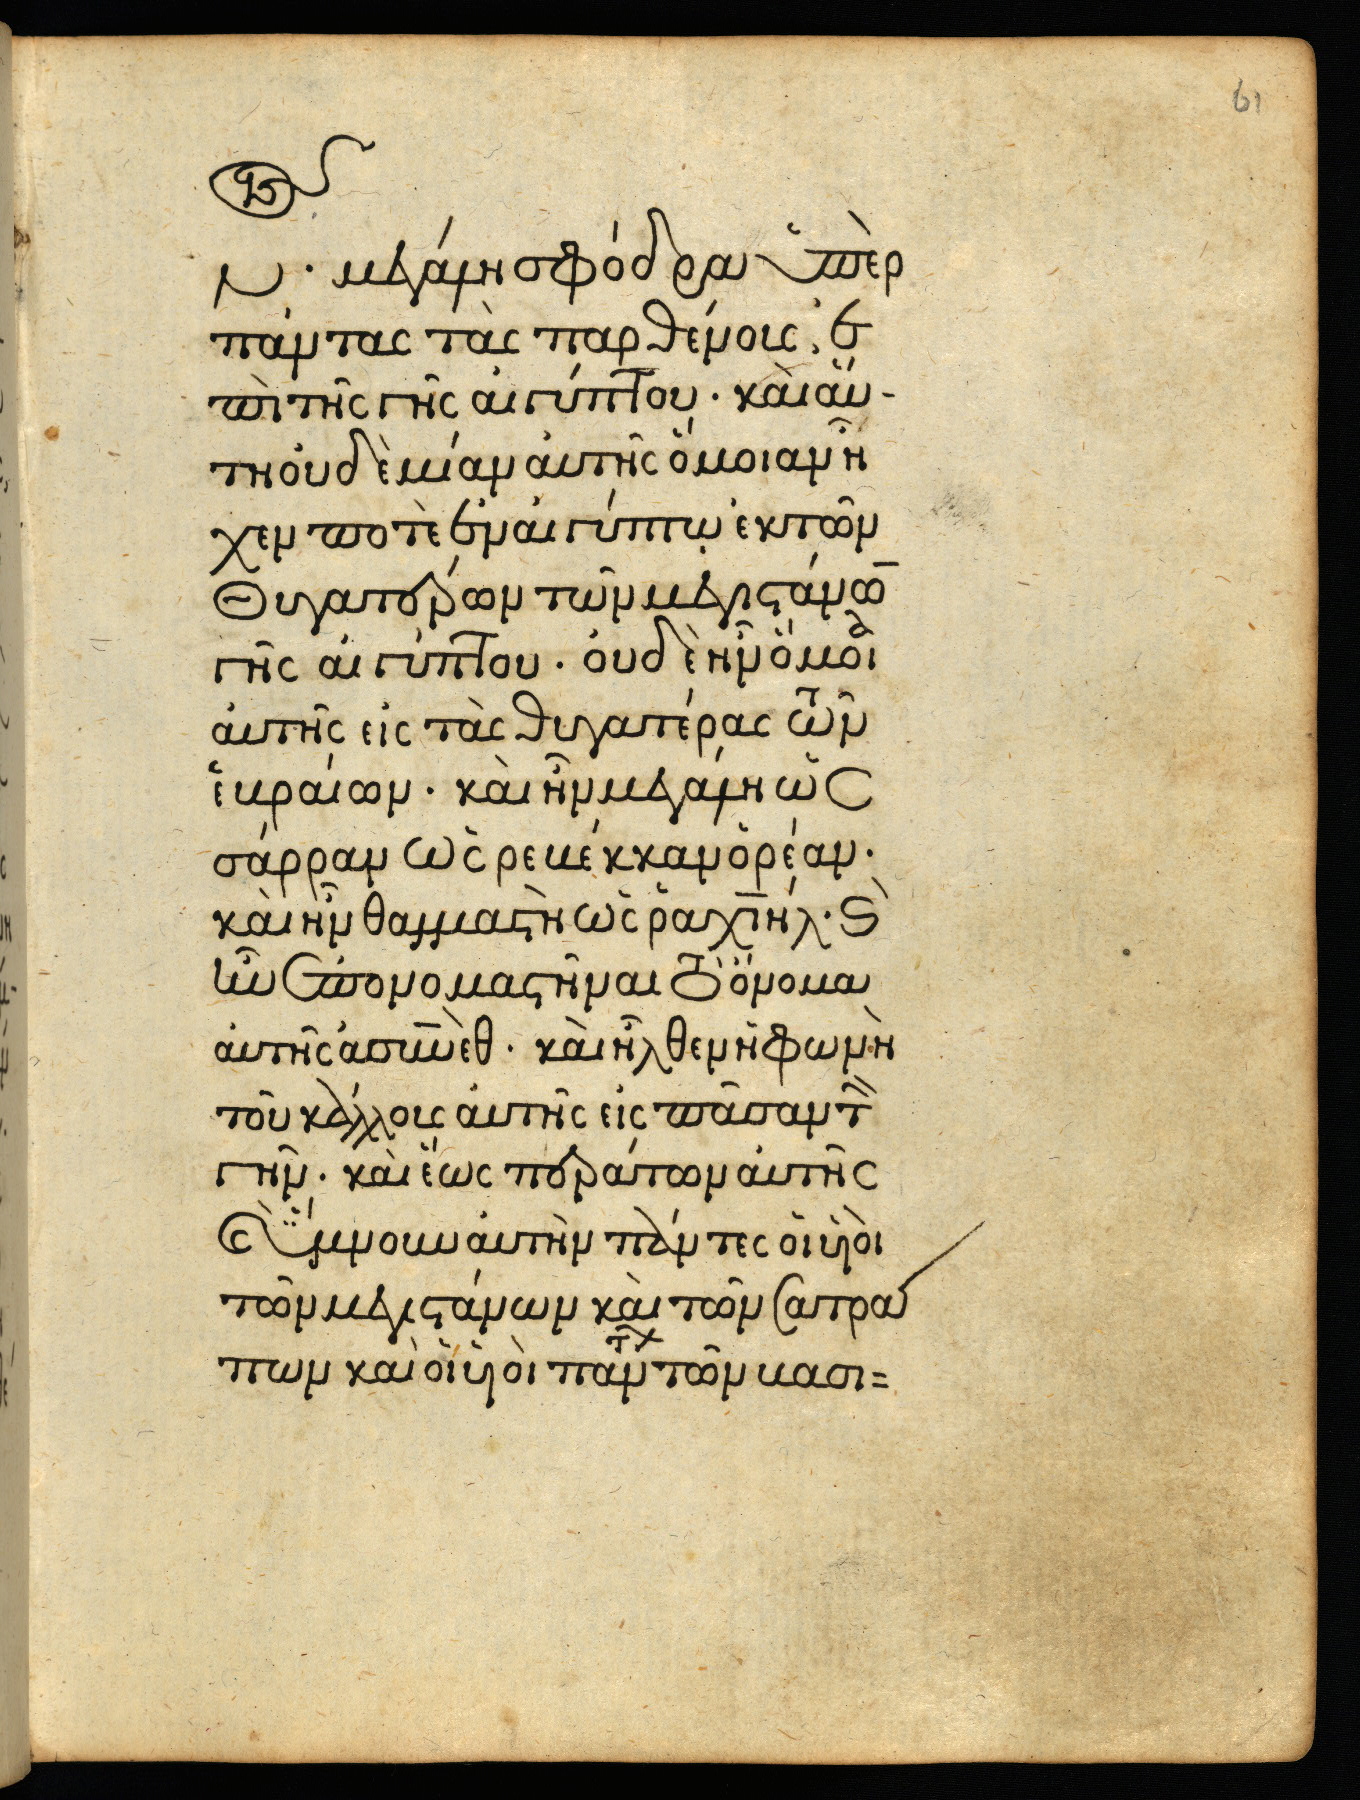 61
ν · μεγάλη σφόδρα ὑπὲρ
πάντας τὰς παρθένοις ἐ
πὶ τῆς γῆς αἰγύπτου · καὶ αὕ-
τη οὐδεμίαν αὐτῆς ὅμοιαν ἦ
χεν ποτὲ ἐν αἰγύπτω ἐκ τῶν
θυγατέρων τῶν μεγιστάνω̅
γῆς αἰγύπτου · οὐδὲ ἦν ὅμοι
αὐτῆς εἰς τὰς θυγατέρας τῶν
ἑβραίων · καὶ ἦν μεγάλη ὡς
σάρραν ὡς ρεβέκκαν ὁρέαν ·
καὶ ἦν θαμμαστὴ ὡς ῥαχιήλ · καὶ
ἦν ἐπονομαστῆναι τὸ ὄνομα
αὐτῆς ἀσυνὲθ · καὶ ἦλθεν ἡ φωνὴ
τοῦ κάλλοις αὐτῆς εἰς πᾶσαν τὴν
γῆν · καὶ ἕως περάτων αὐτῆς
ὕμνουν αὐτὴν πάντες οἱ ὑιοὶ
τῶν μεγιστάνων καὶ τῶν σατρα
πων καὶ οἱ ὑιοὶ παντων τῶν βασι=